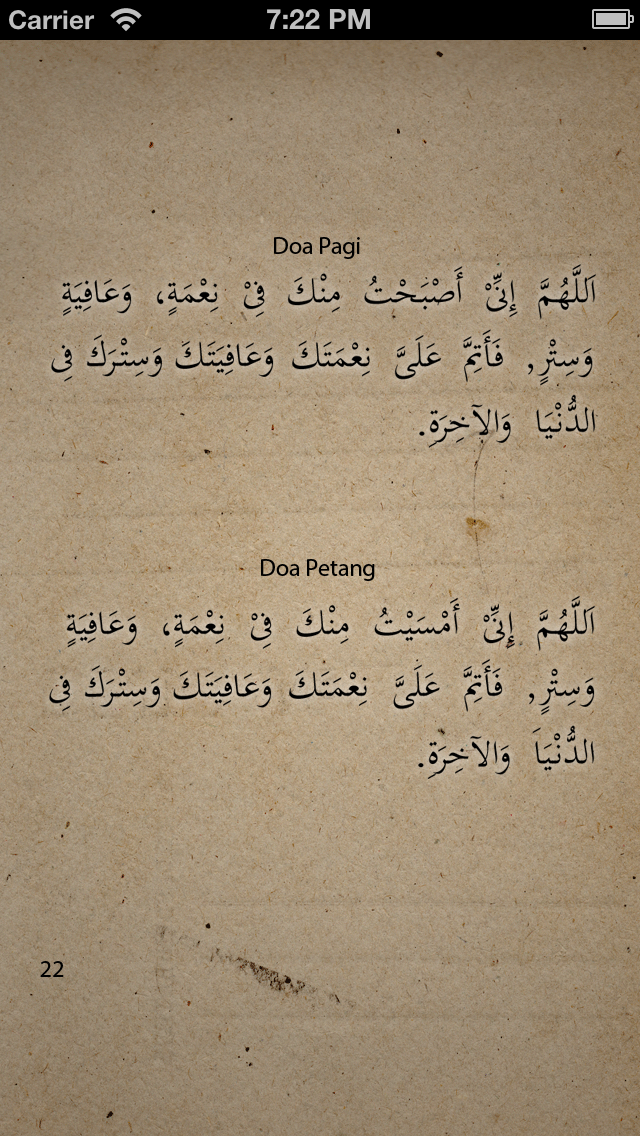 Carrier 7:22 PM
Doa Pagi
اَللَّهُمَّ إِنِّىْ أَصْبَحْتُ مِنْكَ فِىْ نِعْمَةٍ، وَعَافِيَةٍ
وَسِتْرٍ, فَأَتِمَّ عَلَىَّ نِعْمَتَكَ وَعَافِيَتَكَ وَسِتْرَكَ فِى
الدُّنْيَا وَالآخِرَةِ.
Doa Petang
اَللَّهُمَّ إِنِّىْ أَمْسَيْتُ مِنْكَ فِىْ نِعْمَةٍ، وَعَافِيَةٍ
وَسِتْرٍ, فَأَتِمَّ عَلَىَّ نِعْمَتَكَ وَعَافِيَتَكَ وَسِتْرَكَ فِى
الدُّنْيَا وَالآخِرَةِ.
22